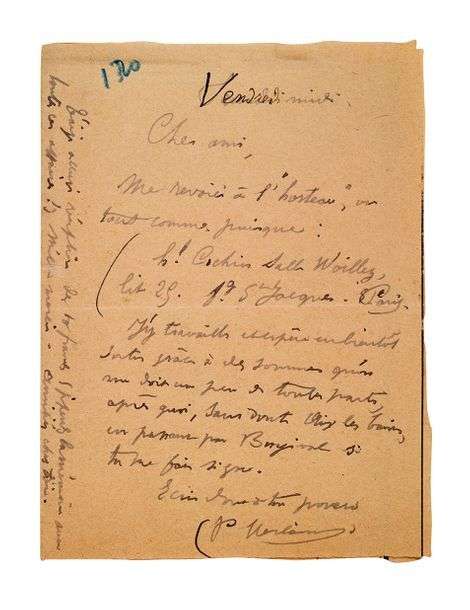 130
Vendredi midi
Cher ami,
Me revoici à l'"hosteau", ou
tout comme, puisque :
hal Cochin Salle Woillez,
lit 25. fg St Jacques. Paris.
J'y travaille et espère en bientôt
sortir grâce à des sommes qu'on
me doit un peu de toutes parts,
après quoi, sans doute Aix les bains,
en passant par Bougival si
tu me fais signe.
Ecris donc à ton pauvre
P. Verlaine
toutes ces affaires